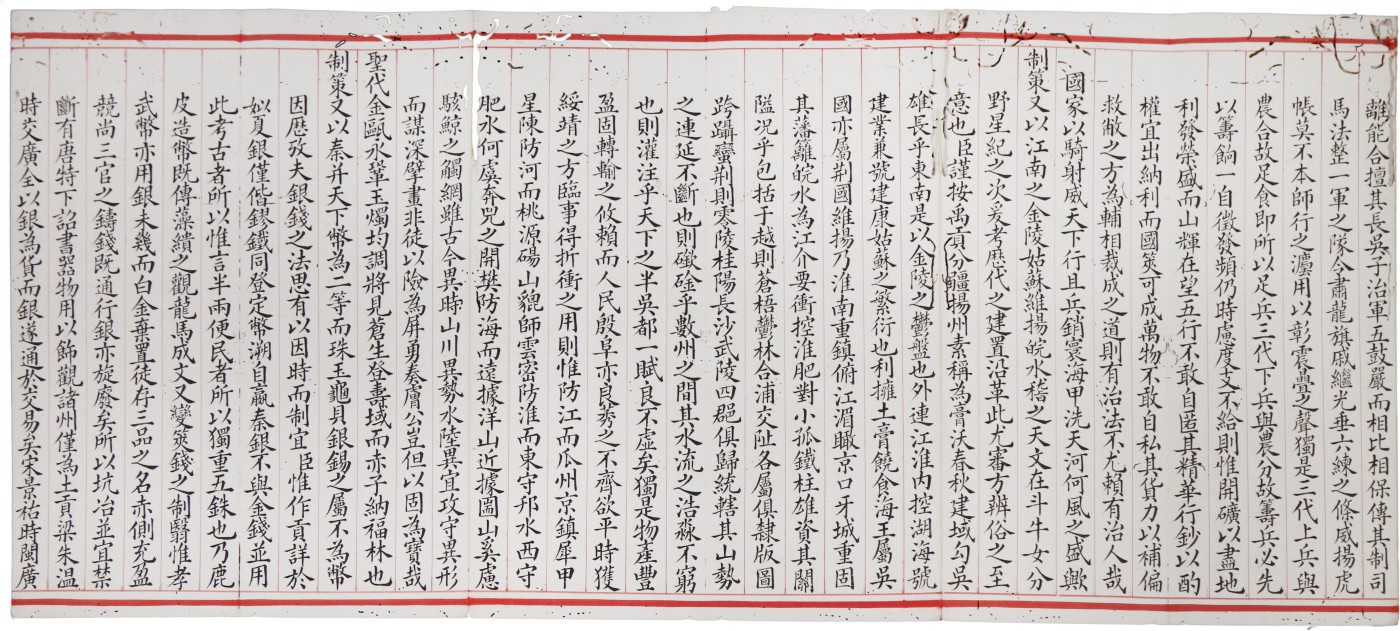 離能合擅其長吳子治軍五鼓嚴而相比相保傳其制司
馬法整一軍之隊令肅龍旗戚繼光垂六練之條威揚虎
帳莫不本師行之灋用以彰震疊之聲獨是三代上兵與
農合故足食即所以足兵三代下兵與農分故籌兵必先
以籌餉一自徵發蘋仍時慮度支不給則惟開礦以盡地
利發榮盛而山輝在望五行不敢自匿其精華行鈔以酌
權宜出納利而國筴可成萬物不敢自私其貨力以補偏
救敝之方為輔相裁成之道則有治法不尤賴有治人哉
國家以騎射威天下行且兵銷寰海甲洗天河何風之盛歟
制策又以江南之金陵姑蘇維揚皖水稽之天文在斗牛女分
野星紀之次爰考歷代之建置沿革此尤審方辨俗之至
意也臣謹按禹貢分疆揚州素稱為膏沃春秋建域勾吳
雄長乎東南是以金陵之鬱盤也外連江淮內控湖海號
建業兼號建康姑蘇之繁衍也利擁土膏饒食海王屬吳
國亦屬荆國維揚乃淮南重鎮俯江湄瞰京口牙城重固
其藩籬皖水為江介要衝控淮肥對小孤鐵柱雄資其關
隘況乎包括于越則蒼梧鬱林合浦交阯各屬俱隸版圖
跨躡蠻荆則零陵桂陽長沙武陵四郡俱歸統轄其山勢
之連延不斷也則礮硿乎數州之間其水流之浩淼不窮
也則灌注乎天下之半吳都一賦良不虛矣獨是物產豐
盈固轉輸之攸賴而人民殷阜亦良莠之不齊欲平時獲
綏靖之方臨事得折衝之用則惟防江而瓜州京鎮犀甲
星陳防河而桃源碭山貔師雲密防淮而東守邗水西守
肥水何虞奔兕之開樊防海而遠據洋山近據圖山奚慮
駭鯨之觸網雖古今異時山川異勢水陸異宜攻守異形
而謀深擘畫非徒以險為屏勇奏膚公豈但以固為寶哉
聖代金甌永鞏玉燭均調將見蒼生登壽域而赤子納福林也
制策又以秦并天下幣為二等而珠玉龜貝銀錫之屬不為幣
因歷攷夫銀錢之法思有以因時而制宜臣惟作貢詳於
姒夏銀僅偕鏐鐵同登定幣溯自嬴秦銀不與金錢並用
此考古者所以惟言半兩便民者所以獨重五銖也乃鹿
皮造幣既傳藻繢之觀龍馬成文又變筴錢之制翳惟孝
武幣亦用銀未幾而白金棄置徒存三品之名赤側充盈
競尚三官之鑄錢既通行銀亦旋廢矣所以坑冶並宜禁
斷有唐特下詔書器物用以飾觀諸州僅為土貢梁朱溫
時交廣全以銀為貨而銀遂通於交易矣宋景祐時閩廣